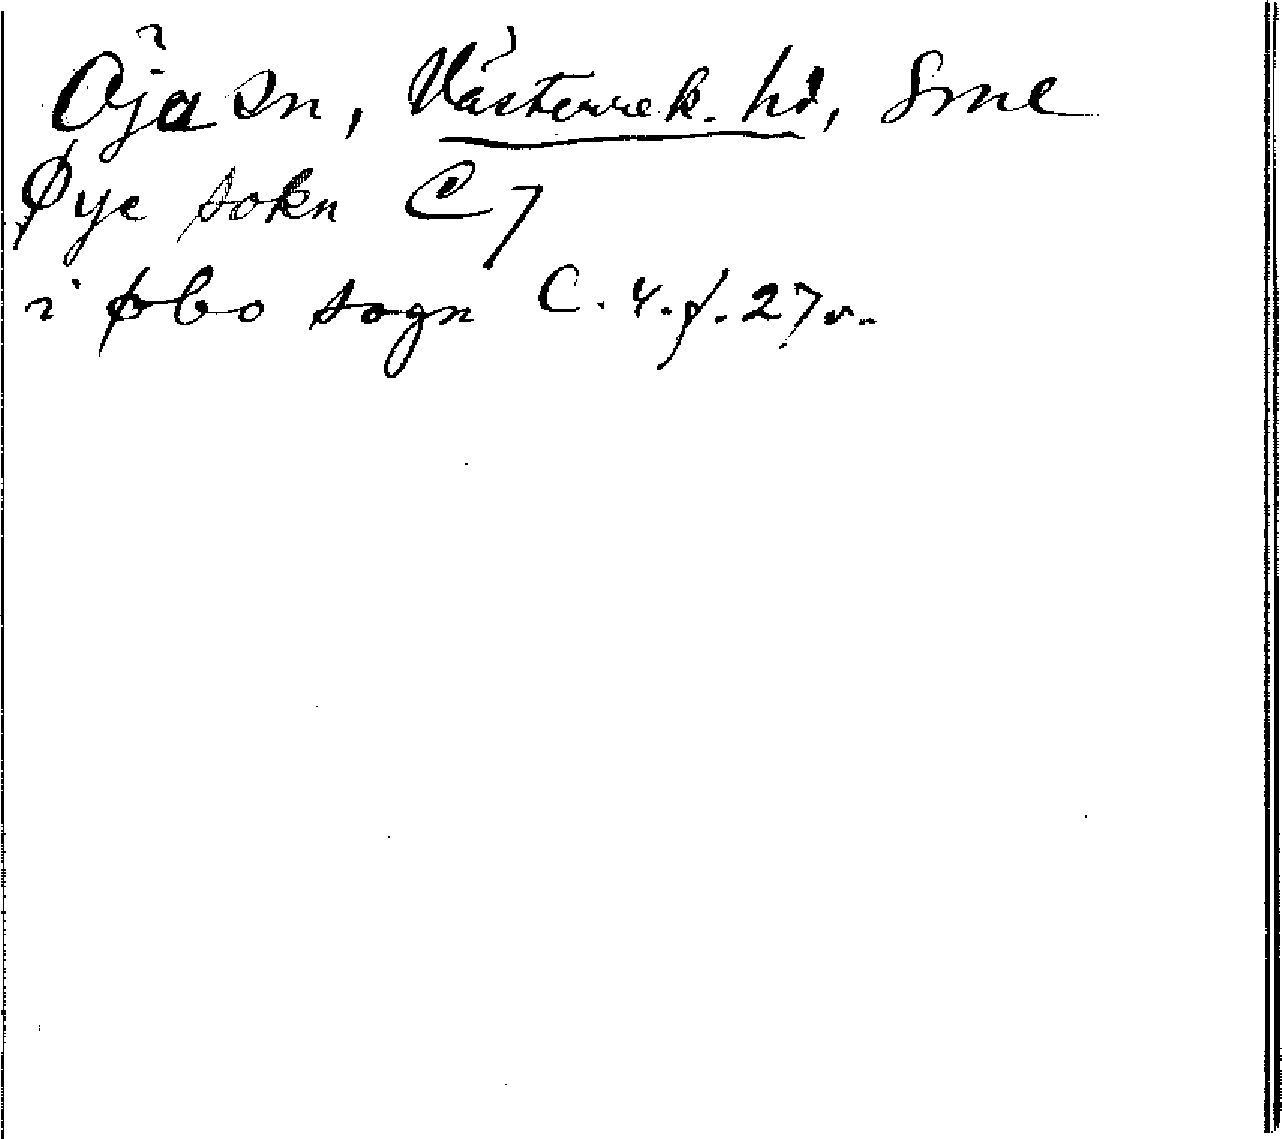 Öja sn, Västerrek. hd, Sml
Øye sokn C 7
i øbo sogn C. 4. f. 27v.